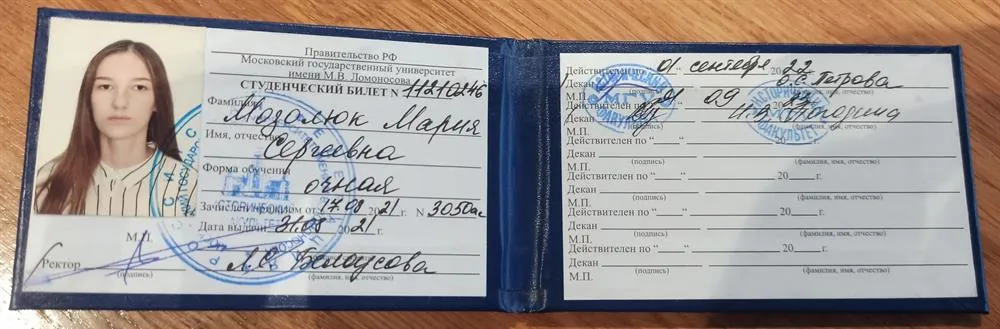 Правительство РФ
Московский государственный университет
имени М.В. Ломоносова
СТУДЕНЧЕСКИЙ БИЛЕТ N 11210246
Фамилия Мозолюк Мария
Имя, отчество Сергеевна
Форма обучения очная
Зачислен приказом от 17.08 2021 г. N 3050ас
Дата выдачи 31.08 2021 г.
М.П.
Ректор Л.С. Белоусова
(подпись) (фамилия, имя, отчество)
Действителен по "01" сентября 2022
Декан
М.П.
Действителен по 01 09
Декан
М.П.
Действителен по "___" 20___г.
Декан
(подпись) (фамилия, имя, отчество)
М.П.
Действителен по "___" 20___г.
Декан
(подпись) (фамилия, имя, отчество)
М.П.
Действителен по "___" 20___г.
Декан
(подпись) (фамилия, имя, отчество)
М.П.
Действителен по "___" 20___г.
Декан
(подпись) (фамилия, имя, отчество)
М.П.